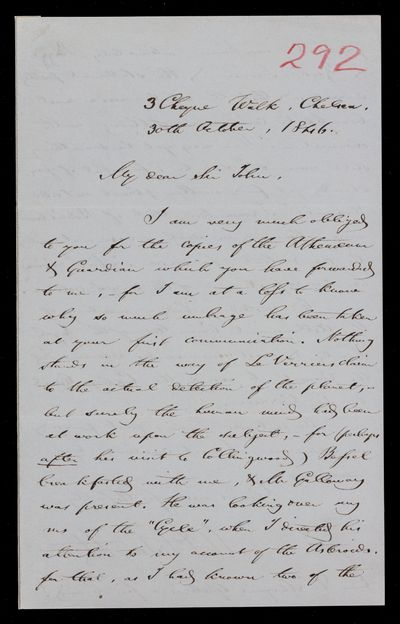 292
3 Cheyne Walk, Chelsea.
30th October, 1846.
My dear Sir John,
I am very much obliged
to you for the copies of the Athenæum
& Guardian which you have forwarded
to me, - for I am at a loss to know
why so much umbrage has been taken
at your first communication. Nothing
stands in the way of Le Verriers claim
to the actual detection of the planet; -
but surely the human mind had been
at work upon the subject, - for (perhaps
after his visit to Collingwood) Bessel
breakfasted with me, & Mr Galloway
was present. He was looking over my
ms of the "Cycle", when I directed his
attention to my account of the Asteroids,
for that, as I had known two of the